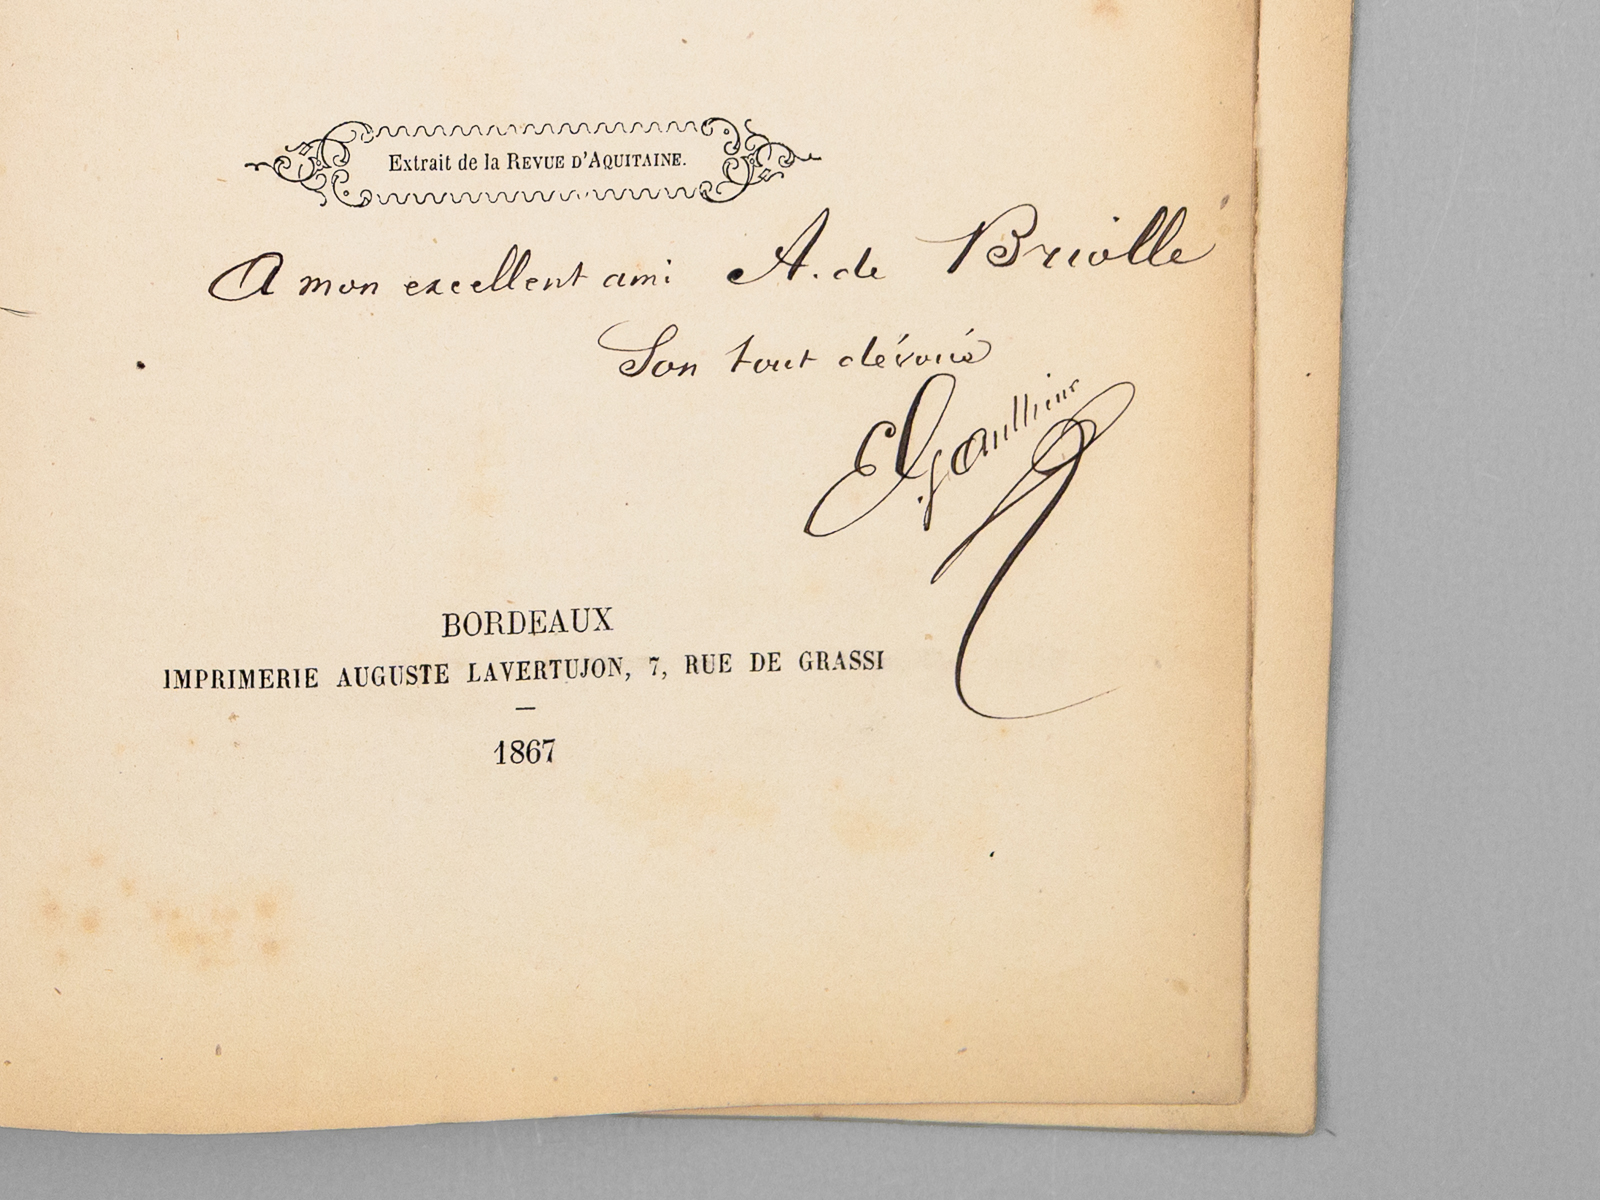 Extrait de la REVUE D'AQUITAINE.
A mon excellent ami A. de Briolle
Son tout dévoué
E Gaullieur
BORDEAUX
IMPRIMERIE AUGUSTE LAVERTUJON, 7, RUE DE GRASSI
—
1867